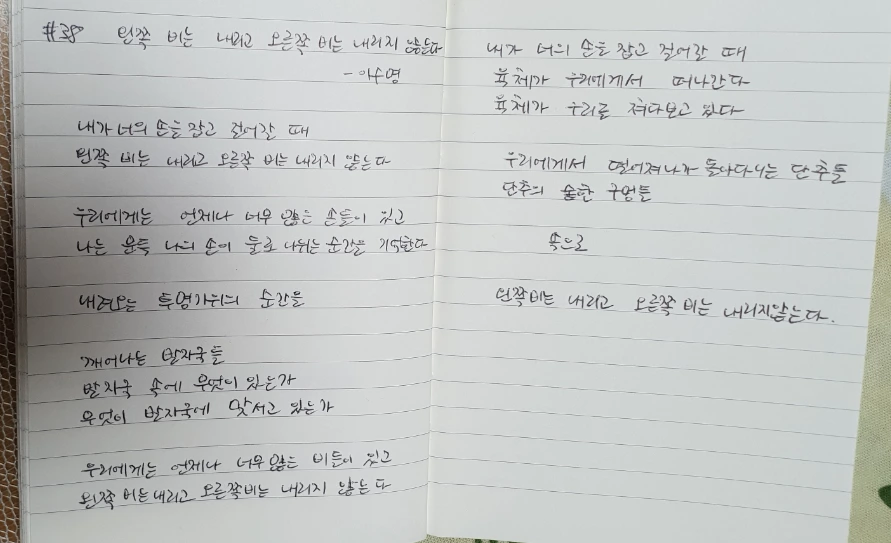 #38 왼쪽 비는 내리고 오른쪽 비는 내리지 않는다
- 이수명
내가 너의 손을 잡고 걸어갈 때
왼쪽 비는 내리고 오른쪽 비는 내리지 않는다
우리에게는 언제나 너무 많은 손들이 있고
나는 문득 나의 손이 둘로 나뉘는 순간을 기억한다
내려오는 투명가위의 순간을
깨어나는 발자국들
발자국 속에 무엇이 있는가
무엇이 발자국에 맞서고 있는가
우리에게는 언제나 너무 많은 비들이 있고
왼쪽 비는 내리고 오른쪽 비는 내리지 않는다
내가 너의 손을 잡고 걸어갈 때
육체가 우리에게서 떠나간다
육체가 우리를 쳐다보고 있다
우리에게서 떨어져나가 돌아다니는 단추들
단추의 숱한 구멍들
속으로
왼쪽 비는 내리고 오른쪽 비는 내리지 않는다.